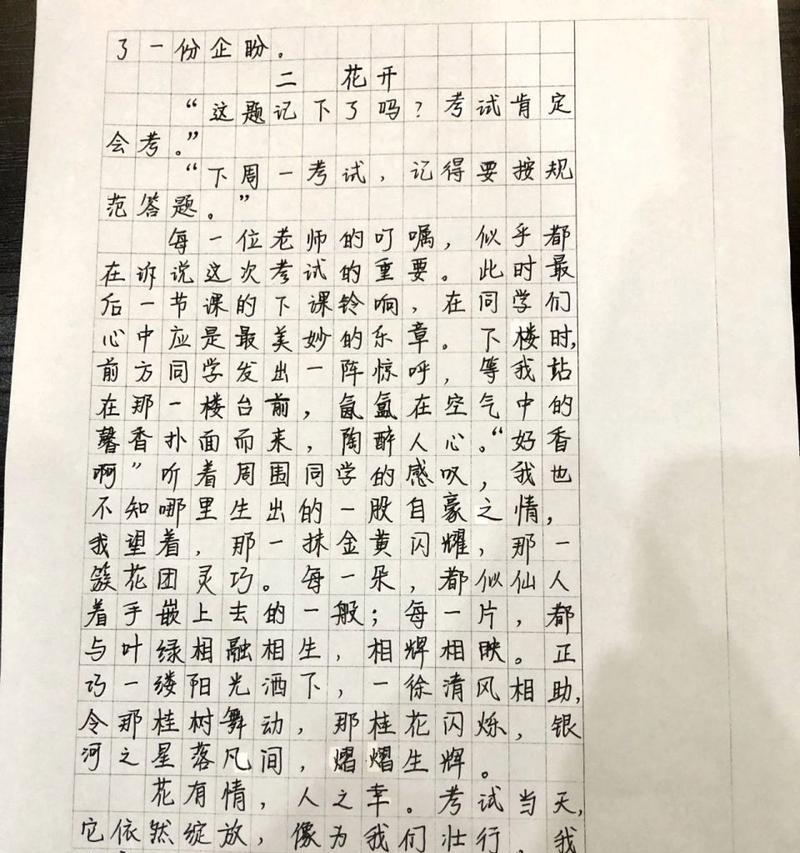 了一份企盼。
二 花开
“这题记下了吗？考试肯定
会考。”
“下周一考试，记得要按规
范答题。”
每一位老师的叮嘱，似乎都
在诉说这次考试的重要。此时最
后一节课的下课铃响，在同学们
心中应是最美妙的乐章。下楼时，
前方同学发出一阵惊呼，等我站
在那一楼台前，氤氲在空气中的
馨香扑面而来，陶醉人心。“好香
啊”听着周围同学的感叹，我也
不知哪里生出的一股自豪之情，
我望着，那一抹金黄闪耀，那一
簇花团灵巧。每一朵，都似仙人
着手嵌上去的一般；每一片，都
与叶绿相融相生，相辉相映。正
巧一缕阳光洒下，一徐清风相助，
令那桂树舞动，那桂花闪烁，银
河之星落凡间，熠熠生辉。
花有情，人之幸。考试当天，
它依然绽放，像为我们壮行，我